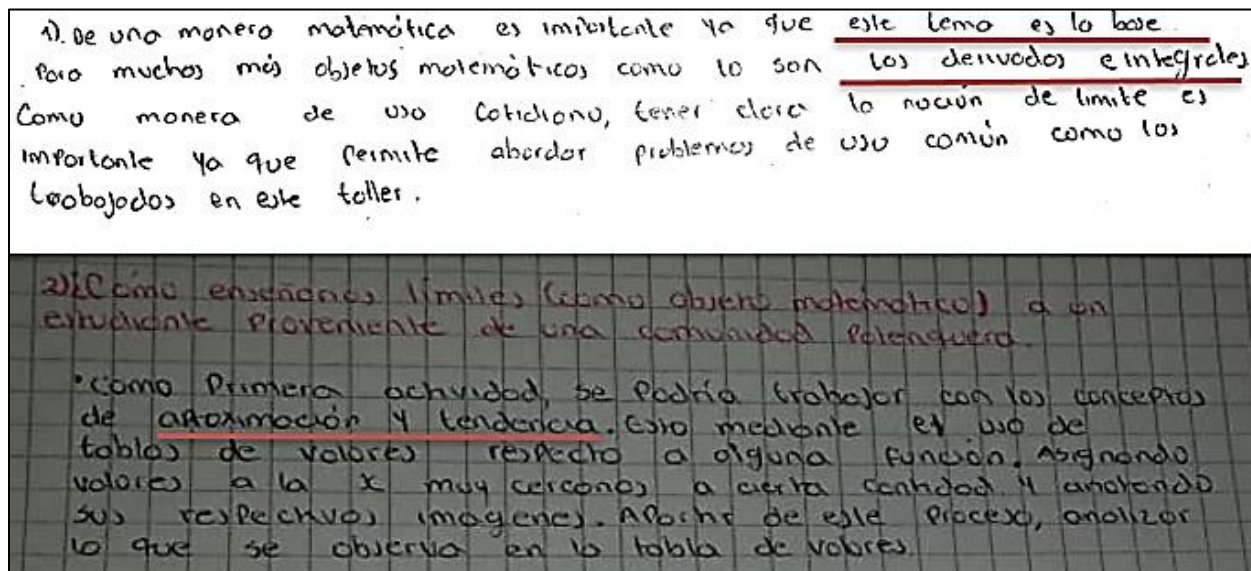 1). De una manera matemática es importante ya que este tema es la base
para muchos más objetos matemáticos como lo son los derivados e integrales
Como manera de uso cotidiano, tener clara la noción de limite es
importante ya que permite abordar problemas de uso común como los
trabajados en este taller.
2) ¿Cómo enseñanos límites (como objeto matemático) a un
estudiante proveniente de una comunidad Palenquera.
• como Primera actividad, se Podría trabajar con los conceptos
de aproximación y tendencia. Esto mediante el uso de
tablas de valores respecto a alguna función. Asignando
valores a la x muy cercanos a cierta cantidad y anotando
sus respectivos imagenes. Apartir de este proceso, analizar
lo que se observa en la tabla de valores.